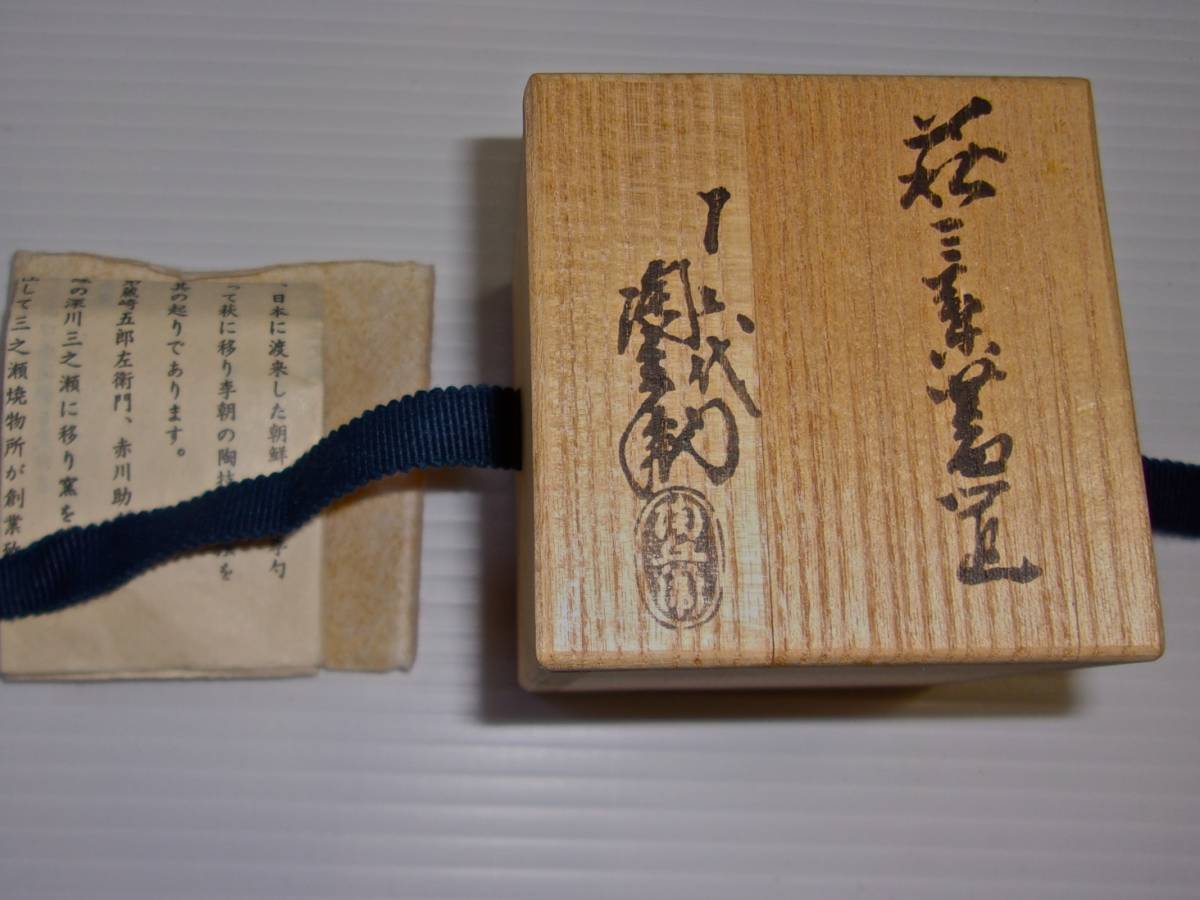 萩三蓋置
代
陶兵衛
、日本に渡来した朝鮮 勺
って萩に移り李朝の陶技 を
其の起りであります。
蔵崎五郎左衛門、赤川助
の深川三之瀬に移り窯を
して三之瀬焼物所が創業